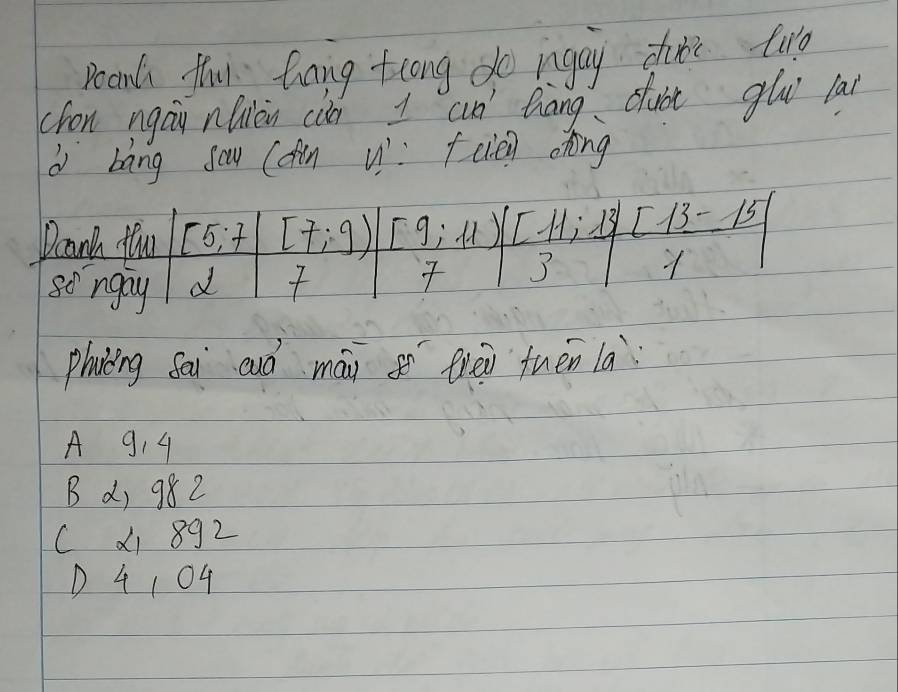 Doanh thu hàng trong 20 ngày được lựa
chọn ngẫu nhiên của 1 cửa hàng được ghi lại
ở bảng sau (đơn vị: triệu đồng
Doanh thu | [5;7 | [7;9) | [9;11) | [11;13 | [13-15
số ngày | 2 | 7 | 7 | 3 | 1
phương sai của mẫu số liệu trên là:
A 9,4
B 2,982
C 2,892
D 4,04